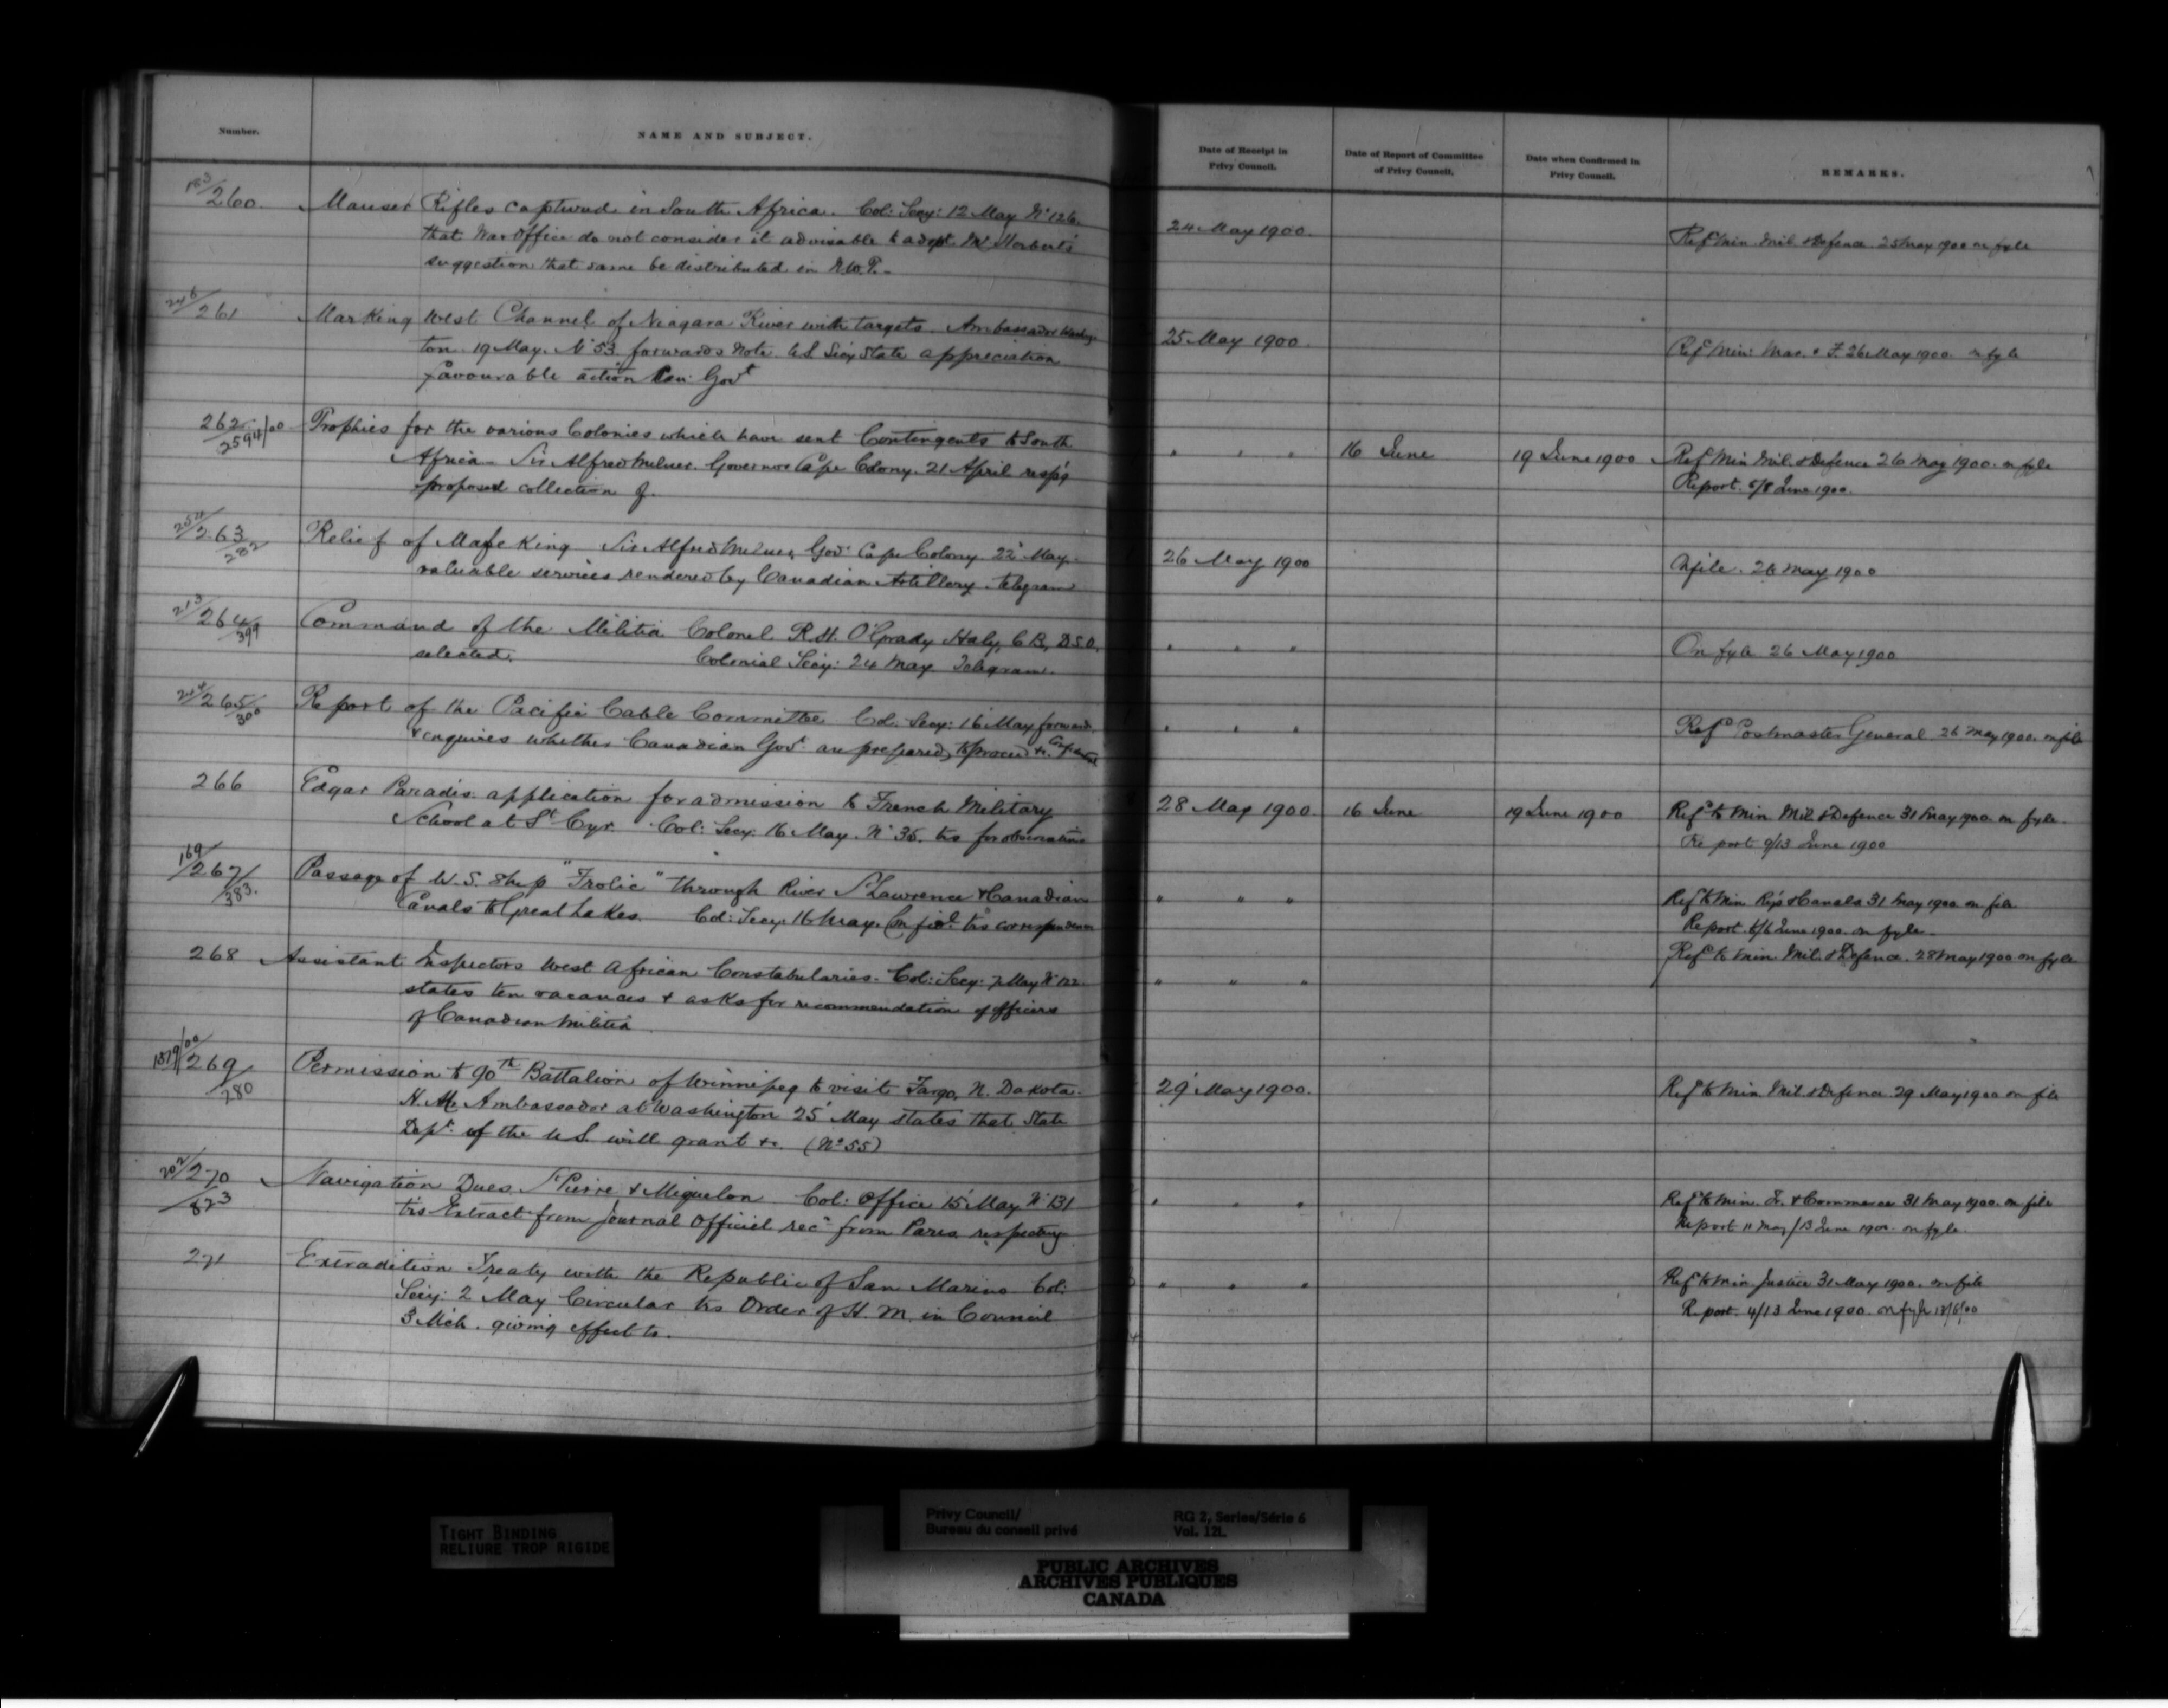 Number.
NAME AND SUBJECT.
Date of Receipt in
Privy Council.
Date of Report of Committee
of Privy Council.
Date when Confirmed in
Privy Council.
REMARKS.
183/260. Mauser Rifles captured in South Africa. Col: Secy: 12 May No 126.
that War Office do not consider it advisable to adopt Mr Herbert's
suggestion that same be distributed in N.W.T.
24 May 1900.
Refd Min. Mil. & Defence 25 May 1900 on fyle
246/261 Marking West Channel of Niagara River with targets. Ambassador Washing
ton. 19 May. No 53. forwards Note U.S. Secy State appreciation
favourable action Can: Govt
25 May 1900.
Refd Min: Mar. & F. 26 May 1900. on fyle
262/2594/00 Trophies for the various Colonies which have sent Contingents to South
Africa - Sir Alfred Milner. Governor Cape Colony. 21 April respg
proposed collection of.
" " "
16 June
19 June 1900
Refd Min Mil. & Defence 26 May 1900. on fyle
Report. 5/8 June 1900.
263/282 Relief of Mafeking Sir Alfred Milner, Govr Cape Colony 22 May.
valuable services rendered by Canadian Artillery. telegram
26 May 1900
On file. 26 May 1900
213/264/399 Command of the Militia Colonel R. St. O'Grady Haly, C.B., D.S.O.
selected. Colonial Secy: 24 May Telegram.
" " "
On fyle 26 May 1900
214/265/300 Report of the Pacific Cable Committee Col. Secy: 16 May forwards
& enquires whether Canadian Govt are prepared to proceed &c.
" " "
Refd Postmaster General 26 May 1900. on file
266 Edgar Paradis. application for admission to French Military
School at St Cyr. Col: Secy. 16 May. No 35. trs for observations
28 May 1900.
16 June
19 June 1900
Refd to Min. Mil. & Defence 31 May 1900. on fyle.
Report 9/13 June 1900
169/267/383. Passage of U.S. Ship "Frolic" through River St Lawrence & Canadian
Canals to Great Lakes. Col: Secy: 16 May. Confidl trs correspondence
" " "
Refd to Min. Rys & Canals 31 May 1900 on file
Report 6/6 June 1900. on fyle.
268 Assistant Inspectors West African Constabularies. Col: Secy: 7 May No 122.
states ten vacancies & asks for recommendation of officers
of Canadian Militia
" " "
Refd to Min. Mil. & Defence. 28 May 1900 on fyle
1879/00/269/280 Permission to 90th Battalion of Winnipeg to visit Fargo, N. Dakota.
H. M. Ambassador at Washington 25 May states that State
Dept. of the U.S. will grant &c. (No 55)
29 May 1900.
Refd to Min. Mil. & Defence 29 May 1900 on file
202/270/823 Navigation Dues St Pierre & Miquelon Col: Office 15 May No 131
trs Extract from Journal Officiel recd from Paris respecting
" "
Refd to Min. Tr. & Commerce 31 May 1900. on file
Report 11 May/13 June 1900. on fyle.
271 Extradition Treaty with the Republic of San Marino Col:
Secy: 2 May Circular trs Order of H. M. in Council
3 Mch. giving effect to.
" " "
Refd to Min Justice 31 May 1900. on file
Report. 4/13 June 1900. on fyle 18/6/00
TIGHT BINDING
RELIURE TROP RIGIDE
Privy Council/
Bureau du conseil privé
RG 2, Series/Série 6
Vol. 121.
PUBLIC ARCHIVES
ARCHIVES PUBLIQUES
CANADA